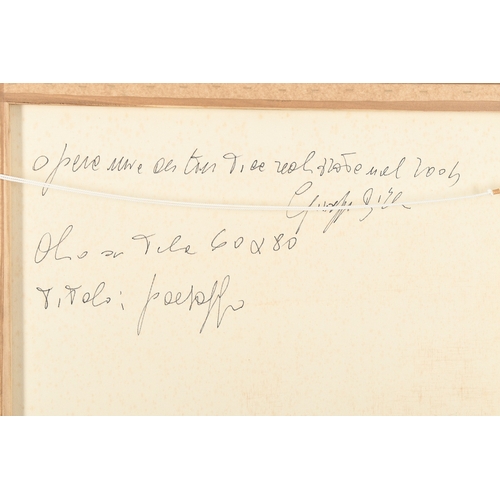 opera mia autentica realizzata nel 2004
Giuseppe
Olio su tela 60x80
Titolo: paesaggio